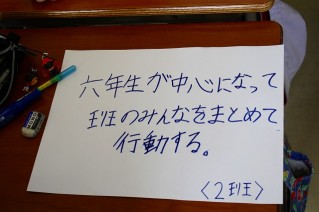 六年生が中心になって
班のみんなをまとめて
行動する。
〈2班〉